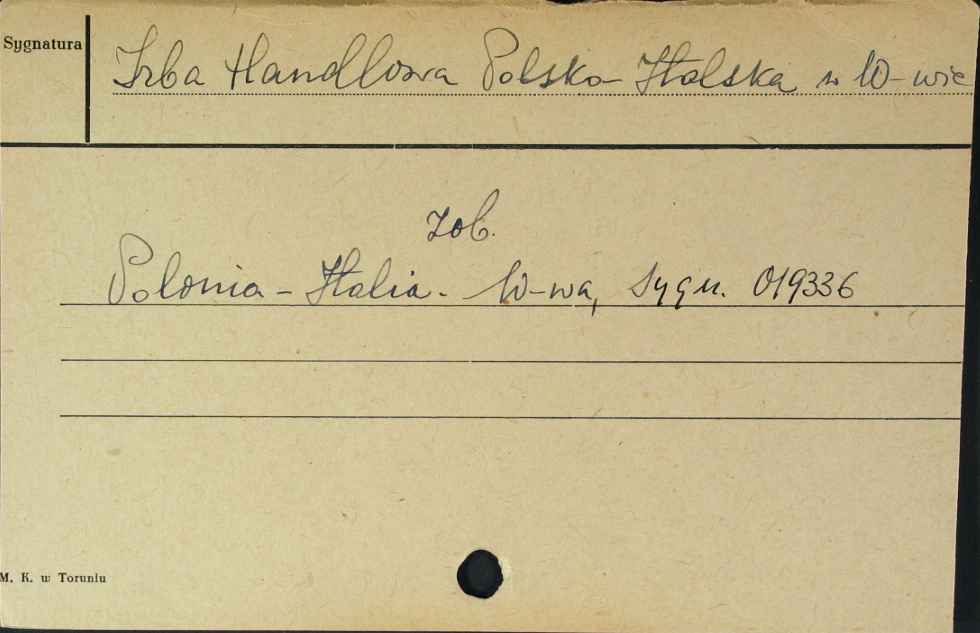 Sygnatura
Izba Handlowa Polsko-Italska w W-wie
zob.
Polonia - Italia. - W-wa, Sygn. 019336
M. K. w Toruniu